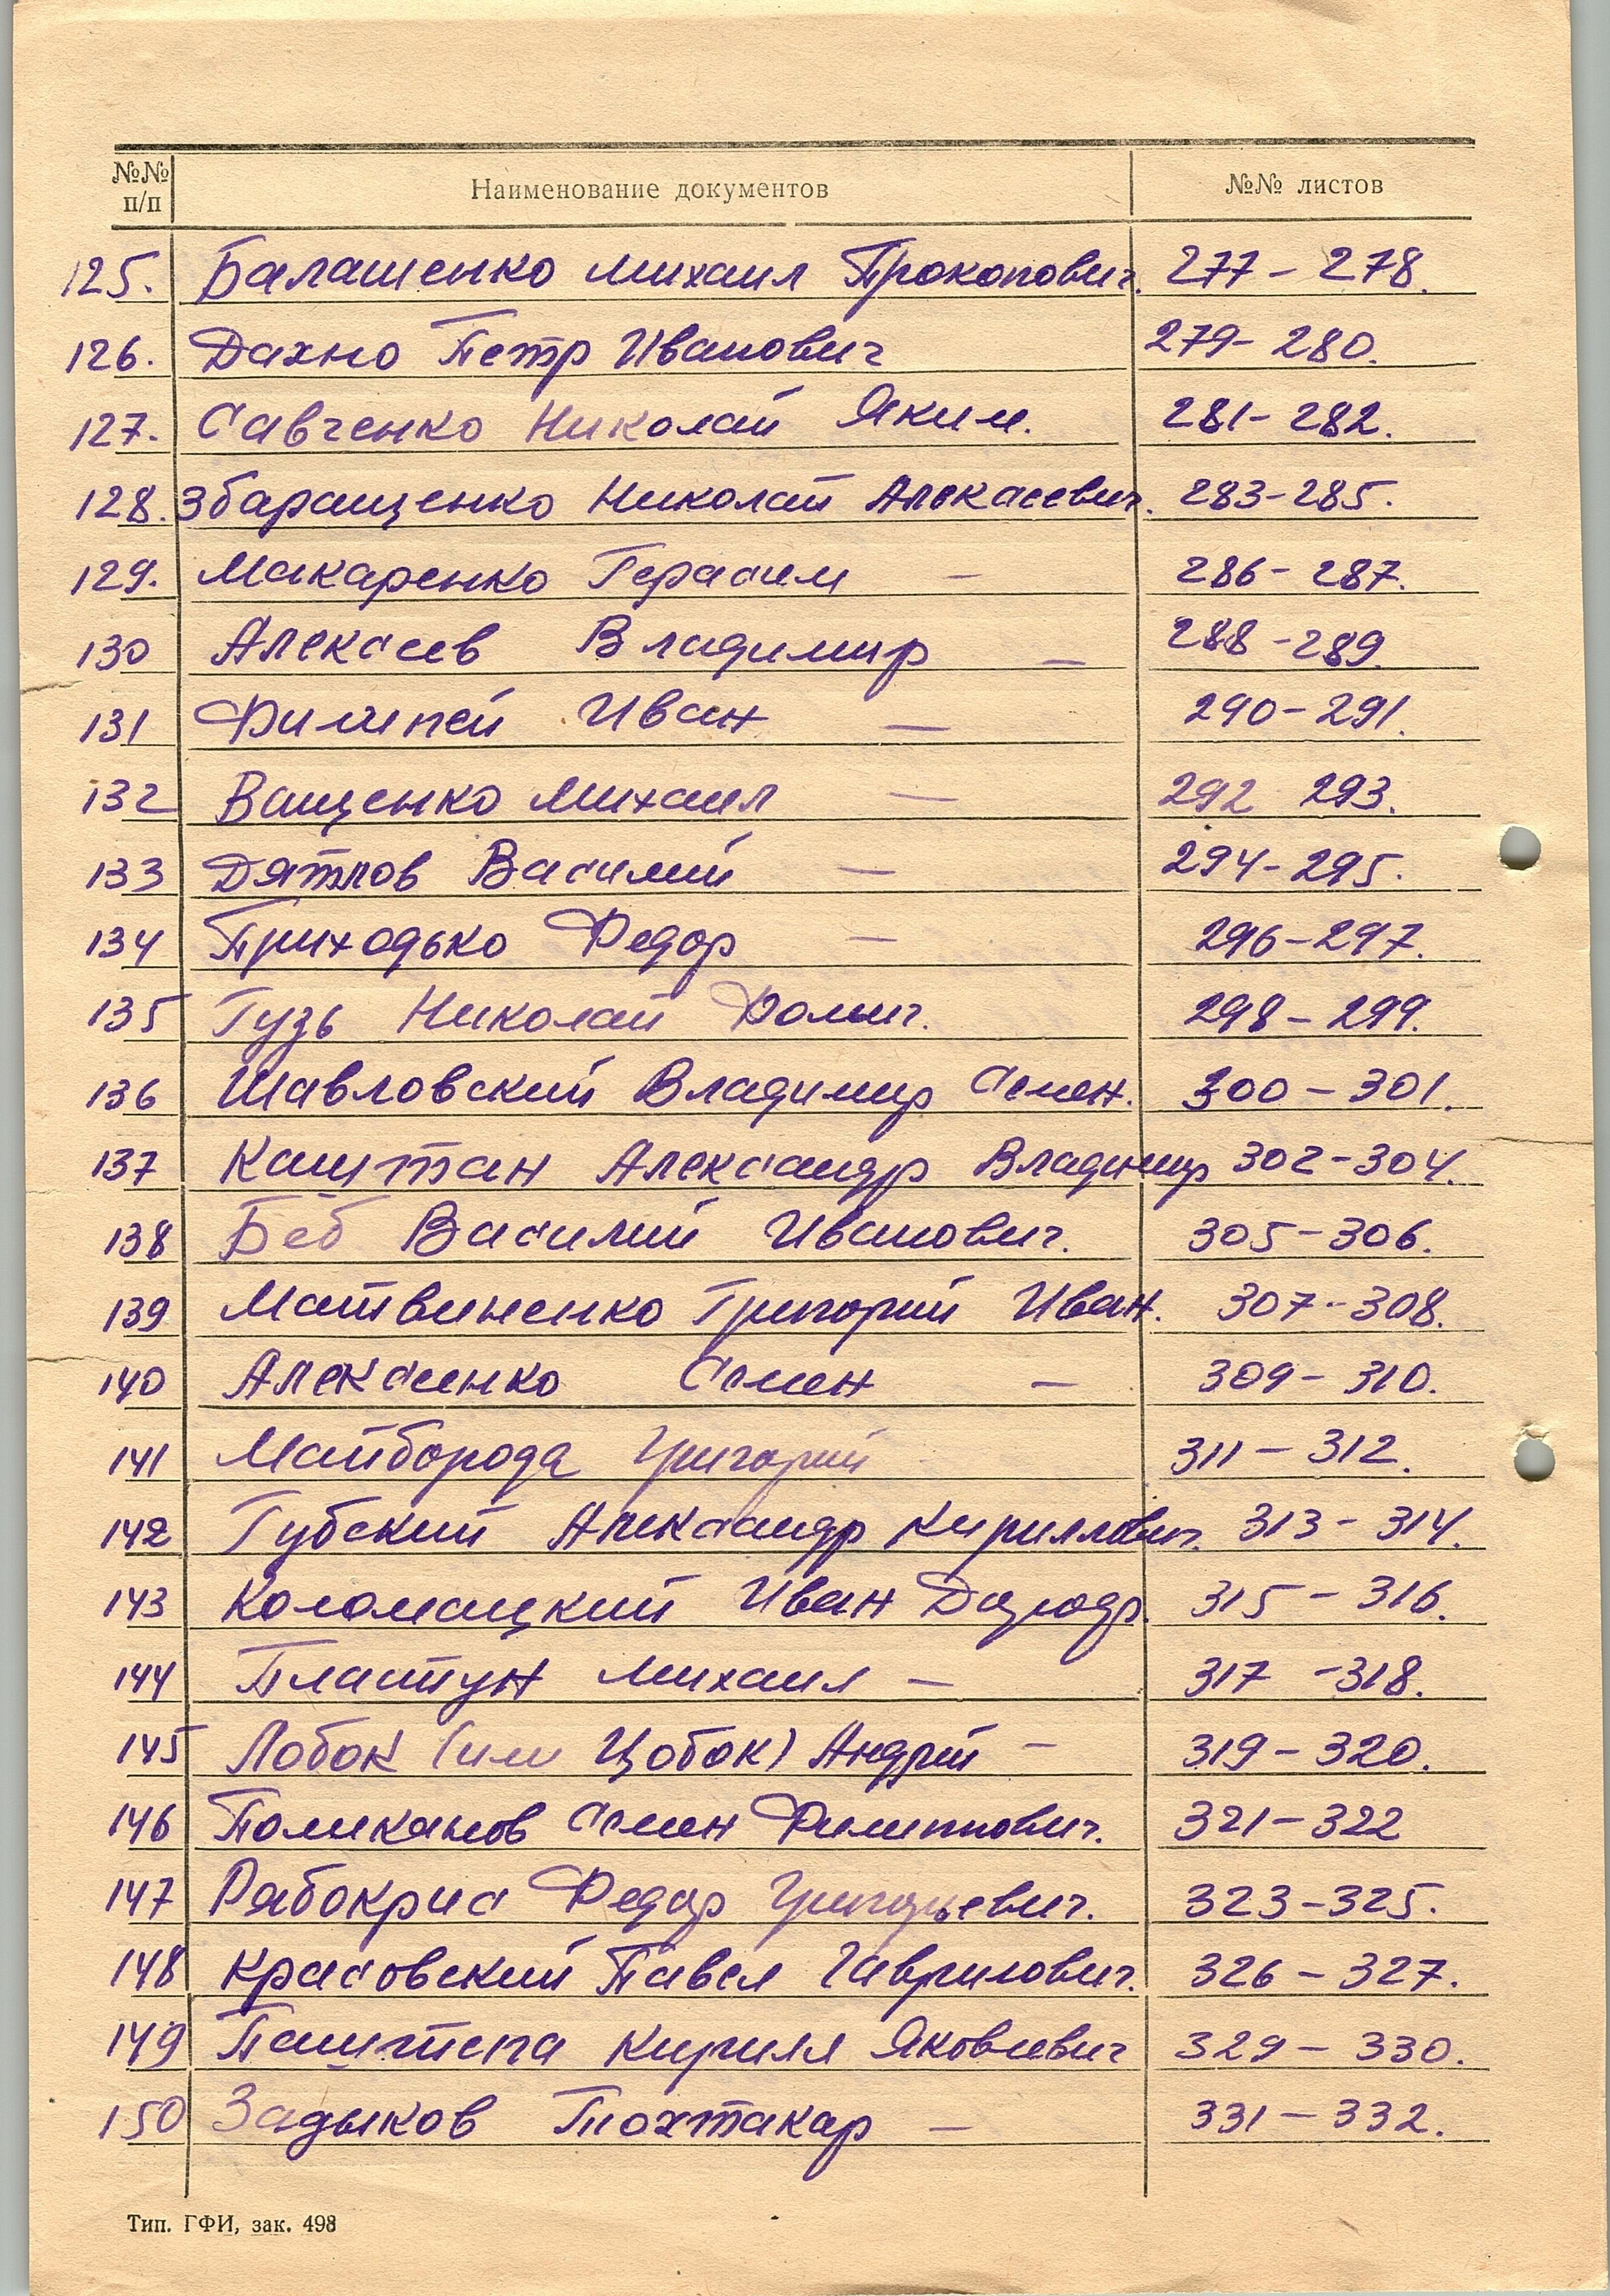 №№ п/п Наименование документов №№ листов
125. Балашенко Михаил Прокопович. 277 – 278.
126. Дахно Петр Иванович 279 – 280.
127. Савченко Николай Яким. 281 – 282.
128. Збаращенко Николай Алексеевич. 283 – 285.
129. Макаренко Герасим – 286 – 287.
130 Алексеев Владимир – 288 – 289.
131 Филипей Иван – 290 – 291.
132 Ващенко Михаил – 292 293.
133 Дятлов Василий – 294 – 295.
134 Приходько Федор – 296 – 297.
135 Гузь Николай Фомич. 298 – 299.
136 Шавловский Владимир Семен. 300 – 301.
137 Каштан Александр Владимир 302 – 304.
138 Беб Василий Иванович. 305 – 306.
139 Матвиненко Григорий Иван. 307 – 308.
140 Алексеенко Семен – 309 – 310.
141 Майборода Григорий 311 – 312.
142 Губский Александр Кириллович. 313 – 314.
143 Коломацкий Иван 315 – 316.
144 Пластун Михаил – 317 – 318.
145 Лобок (или Цобок) Андрей – 319 – 320.
146 Поликанов Семен Филиппович. 321 – 322
147 Рябокрис Федор Григорьевич. 323 – 325.
148 Красовский Павел Гаврилович. 326 – 327.
149 Паштепа Кирилл Яковлевич 329 – 330.
150 Задыков Тохтакар – 331 – 332.
Тип. ГФИ, зак. 498